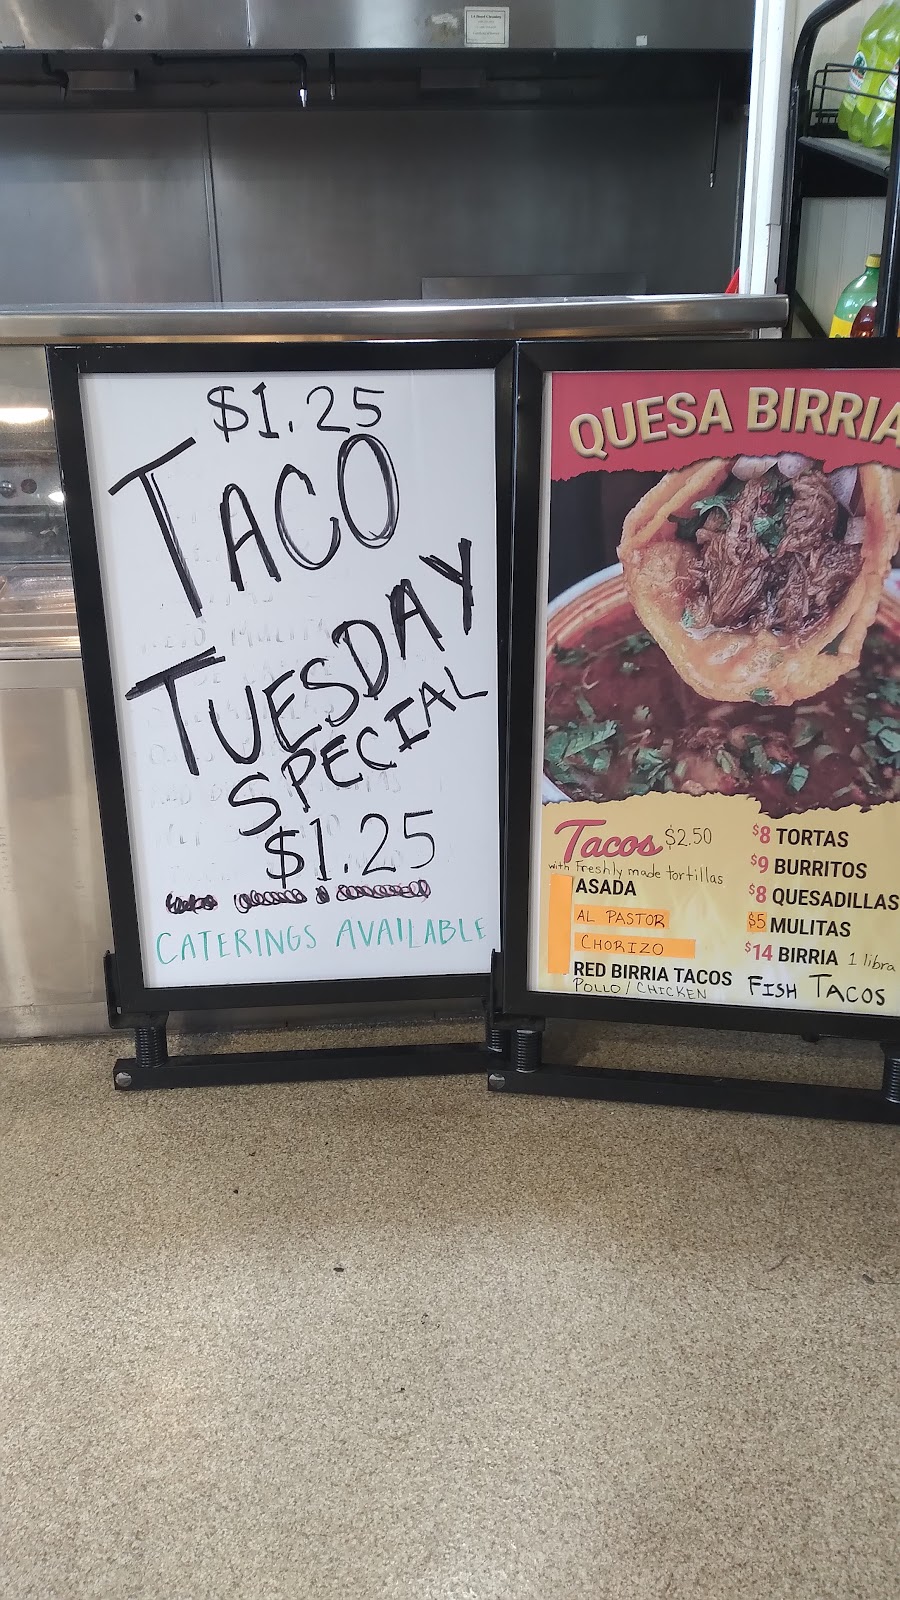 $1.25
TACO
TUESDAY
SPECIAL
$1.25
CATERINGS AVAILABLE
QUESA BIRRIA
Tacos $2.50
with Freshly made tortillas
ASADA
AL PASTOR
CHORIZO
RED BIRRIA TACOS
POLLO / CHICKEN
$8 TORTAS
$9 BURRITOS
$8 QUESADILLAS
$5 MULITAS
$14 BIRRIA 1 libra
FISH TACOS